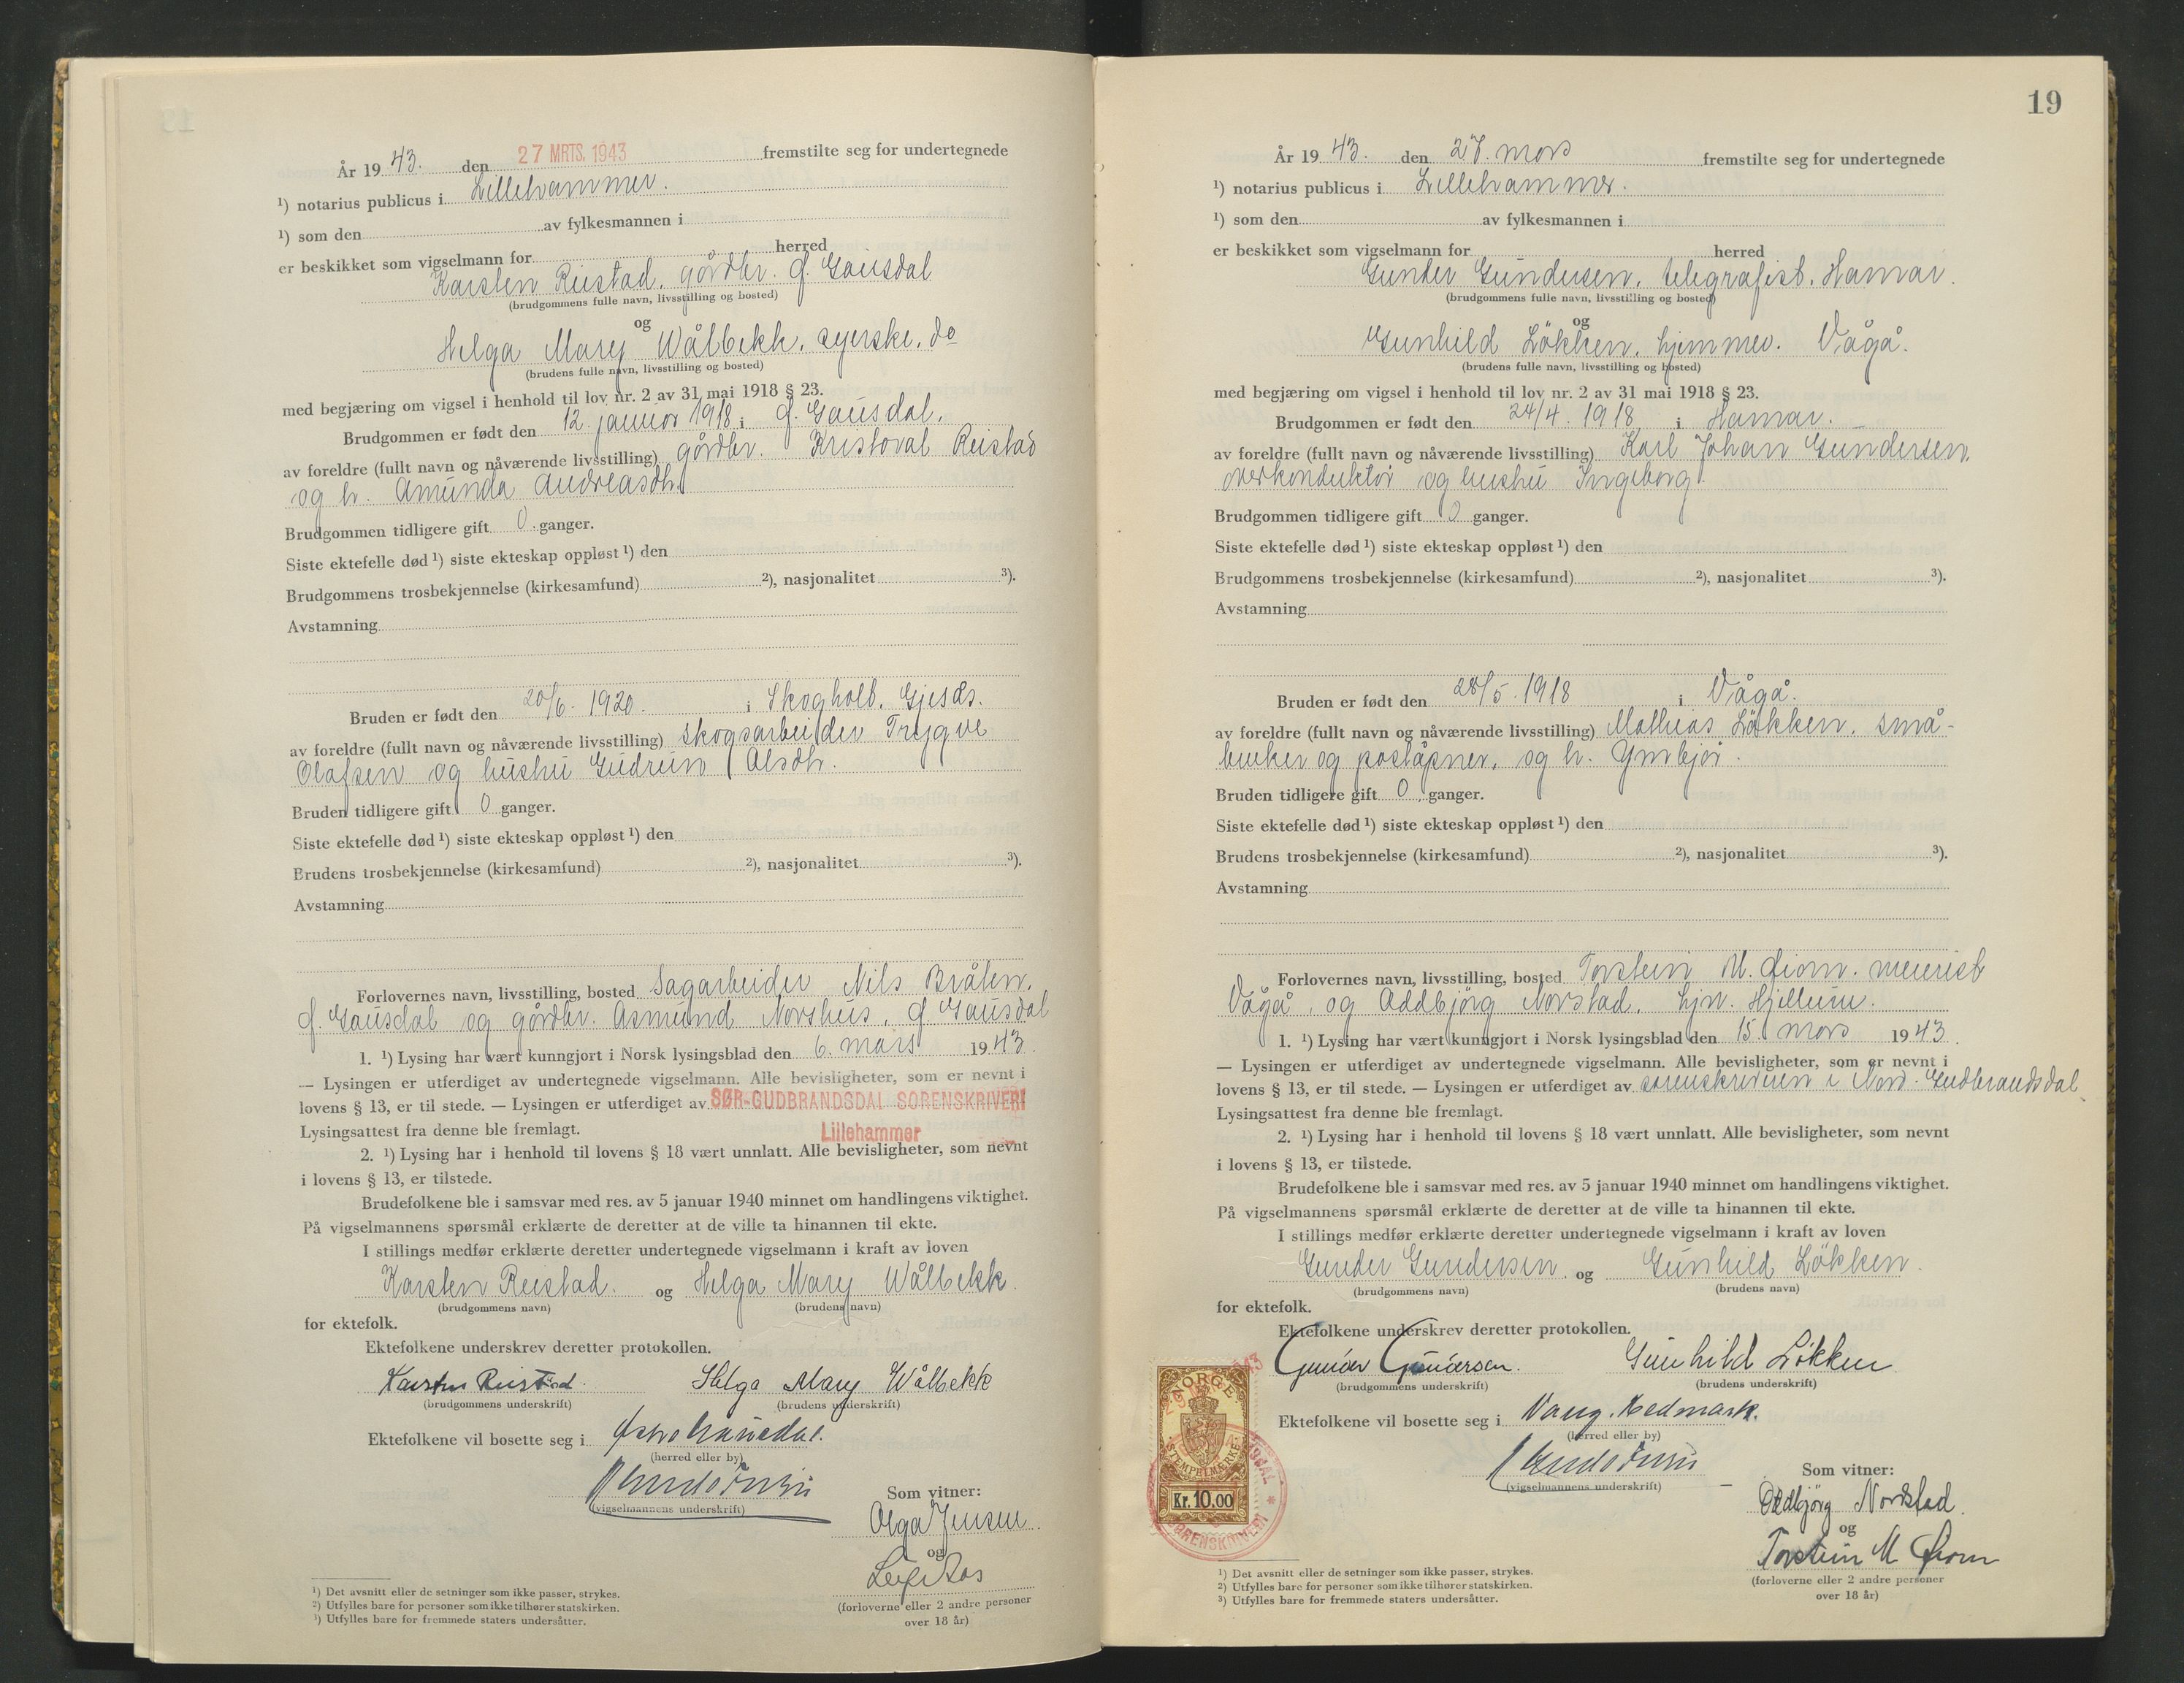 År 19 43. den 27 MRTS. 1943 fremstilte seg for undertegnede
¹) notarius publicus i Lillehammer.
¹) som den av fylkesmannen i
er beskikket som vigselmann for herred
Karsten Reistad, gårdbr. Ø. Gausdal
(brudgommens fulle navn, livsstilling og bosted)
og
Helga Mary Wålbekk, syerske, do
(brudens fulle navn, livsstilling og bosted)
med begjæring om vigsel i henhold til lov nr. 2 av 31 mai 1918 § 23.
Brudgommen er født den 12. januar 1918 i Ø. Gausdal.
av foreldre (fullt navn og nåværende livsstilling) gårdbr. Kristoval Reistad
og h. Amunda Andreasdtr.
Brudgommen tidligere gift 0 ganger.
Siste ektefelle død ¹) siste ekteskap oppløst ¹) den
Brudgommens trosbekjennelse (kirkesamfund) ²), nasjonalitet ³).
Avstamning
Bruden er født den 20/6. 1920. i Skogholt, Gjesds.
av foreldre (fullt navn og nåværende livsstilling) skogsarbeider Trygve
Olafsen og hushu Gudrun Alsdtr.
Bruden tidligere gift 0 ganger.
Siste ektefelle død ¹) siste ekteskap oppløst ¹) den
Brudens trosbekjennelse (kirkesamfund) ²), nasjonalitet ³).
Avstamning
Forlovernes navn, livsstilling, bosted Sagarbeider Nils Bråten,
Ø. Gausdal og gårdbr. Asmund Norshus, Ø. Gausdal
1. ¹) Lysing har vært kunngjort i Norsk lysingsblad den 6. mars 19 43.
— Lysingen er utferdiget av undertegnede vigselmann. Alle bevisligheter, som er nevnt i
lovens § 13, er til stede. — Lysingen er utferdiget av SØR-GUDBRANDSDAL SORENSKRIVERI
Lysingsattest fra denne ble fremlagt. Lillehammer
2. ¹) Lysing har i henhold til lovens § 18 vært unnlatt. Alle bevisligheter, som nevnt
i lovens § 13, er tilstede.
Brudefolkene ble i samsvar med res. av 5 januar 1940 minnet om handlingens viktighet.
På vigselmannens spørsmål erklærte de deretter at de ville ta hinannen til ekte.
I stillings medfør erklærte deretter undertegnede vigselmann i kraft av loven
Karsten Reistad. og Helga Mary Wålbekk.
(brudgommens navn) (brudens navn)
for ektefolk.
Ektefolkene underskrev deretter protokollen.
Karsten Reistad. Helga Mary Wålbekk
(brudgommens underskrift) (brudens underskrift)
Ektefolkene vil bosette seg i Østre Gausdal.
(herred eller by)
(vigselmannens underskrift)
Som vitner:
Olga Jensen.
og
Leif Aas
(forloverne eller 2 andre personer
over 18 år)
¹) Det avsnitt eller de setninger som ikke passer, strykes.
²) Utfylles bare for personer som ikke tilhører statskirken.
³) Utfylles bare for fremmede staters undersåtter.
19
År 19 43. den 27. mars fremstilte seg for undertegnede
¹) notarius publicus i Lillehammer.
¹) som den av fylkesmannen i
er beskikket som vigselmann for herred
Gunder Gundersen, telegrafist, Hamar.
(brudgommens fulle navn, livsstilling og bosted)
og
Gunhild Løkken, hjemmev. Vågå.
(brudens fulle navn, livsstilling og bosted)
med begjæring om vigsel i henhold til lov nr. 2 av 31 mai 1918 § 23.
Brudgommen er født den 24/4. 1918 i Hamar.
av foreldre (fullt navn og nåværende livsstilling) Karl Johan Gundersen,
overkonduktør og hushu Ingeborg.
Brudgommen tidligere gift 0 ganger.
Siste ektefelle død ¹) siste ekteskap oppløst ¹) den
Brudgommens trosbekjennelse (kirkesamfund) ²), nasjonalitet ³).
Avstamning
Bruden er født den 28/5. 1918 i Vågå.
av foreldre (fullt navn og nåværende livsstilling) Mathias Løkken, små-
bruker og poståpner, og h. Ymbjør.
Bruden tidligere gift 0 ganger.
Siste ektefelle død ¹) siste ekteskap oppløst ¹) den
Brudens trosbekjennelse (kirkesamfund) ²), nasjonalitet ³).
Avstamning
Forlovernes navn, livsstilling, bosted Torstein M. Øiom. meierist
Vågå, og Oddbjørg Norstad, hjv. Hjellum.
1. ¹) Lysing har vært kunngjort i Norsk lysingsblad den 15. mars 19 43.
— Lysingen er utferdiget av undertegnede vigselmann. Alle bevisligheter, som er nevnt i
lovens § 13, er til stede. — Lysingen er utferdiget av sorenskriveren i Nord-Gudbrandsdal.
Lysingsattest fra denne ble fremlagt.
2. ¹) Lysing har i henhold til lovens § 18 vært unnlatt. Alle bevisligheter, som nevnt
i lovens § 13, er tilstede.
Brudefolkene ble i samsvar med res. av 5 januar 1940 minnet om handlingens viktighet.
På vigselmannens spørsmål erklærte de deretter at de ville ta hinannen til ekte.
I stillings medfør erklærte deretter undertegnede vigselmann i kraft av loven
Gunder Gundersen og Gunhild Løkken.
(brudgommens navn) (brudens navn)
for ektefolk.
Ektefolkene underskrev deretter protokollen.
Gunder Gundersen. Gunhild Løkken
(brudgommens underskrift) (brudens underskrift)
Ektefolkene vil bosette seg i Vang, Hedmark.
(herred eller by)
(vigselmannens underskrift)
NORGE
STEMPELMÆRKE
Kr. 10.00
SORENSKRIVERI
Som vitner:
Oddbjørg Norstad.
og
Torstein M Øiom
(forloverne eller 2 andre personer
over 18 år)
¹) Det avsnitt eller de setninger som ikke passer, strykes.
²) Utfylles bare for personer som ikke tilhører statskirken.
³) Utfylles bare for fremmede staters undersåtter.